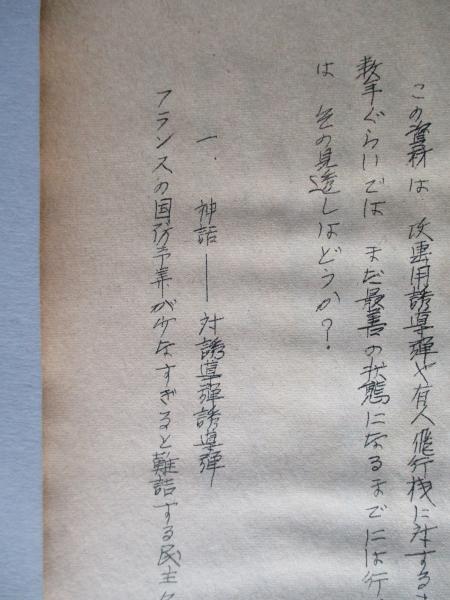 この資料は 攻専用誘導弾や有人飛行機に対する
数年ぐらいでは まだ最善の状態になるまでには行
は その見透しはどうか?
一. 神話——対誘導弾誘導弾
フランスの国防予算が少なすぎると難詰する民主